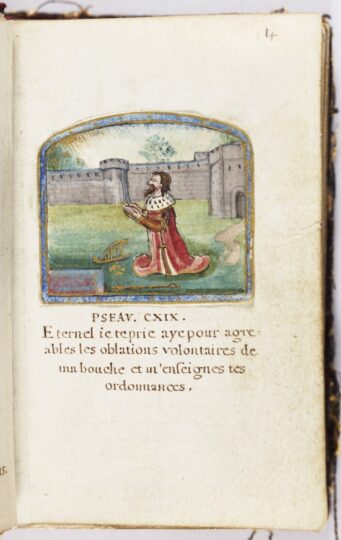 14
PSEAV. CXIX.
Eternel ie te prie aye pour agre=
ables les oblations volontaires de
ma bouche et m'enseignes tes
ordonnances.
is.